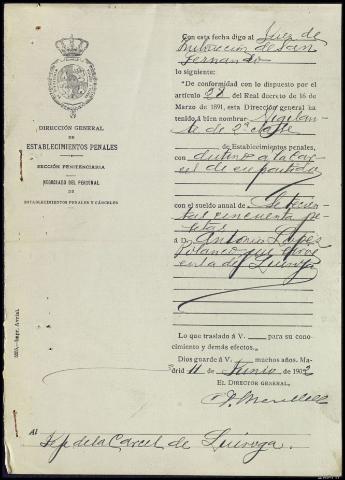 DIRECCIÓN GENERAL
DE
ESTABLECIMIENTOS PENALES
SECCIÓN PENITENCIARIA
NEGOCIADO DEL PERSONAL
DE
ESTABLECIMIENTOS PENALES Y CÁRCELES
Con esta fecha digo al Juez de
Instrucción de San
Fernando
lo siguiente:
"De conformidad con lo dispuesto por el
artículo 28 del Real decreto de 16 de
Marzo de 1891, esta Dirección general ha
tenido á bien nombrar Vigilan-
te de 2ª clase
de Establecimientos penales,
con destino a la car-
cel de su partido
con el sueldo anual de Setecien-
tas cincuenta pe-
setas
á D. Antonio Lopez
Polanco, que sirve
en la de Quiroga
Lo que traslado á V. para su cono-
cimiento y demás efectos.
Dios guarde á V. muchos años. Ma-
drid 11 de Junio de 1902
EL DIRECTOR GENERAL,
Al
Jefe de la Carcel de Quiroga.
Impr. Avrial